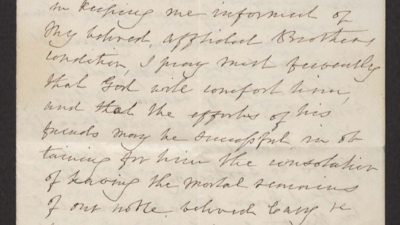 in keeping me informed of
my beloved, afflicted Brothers
condition, I pray most fervently
that God will comfort him,
and that the efforts of his
friends may be successful in ob
taining for him the consolation
of having the mortal remains
of our noble, beloved re